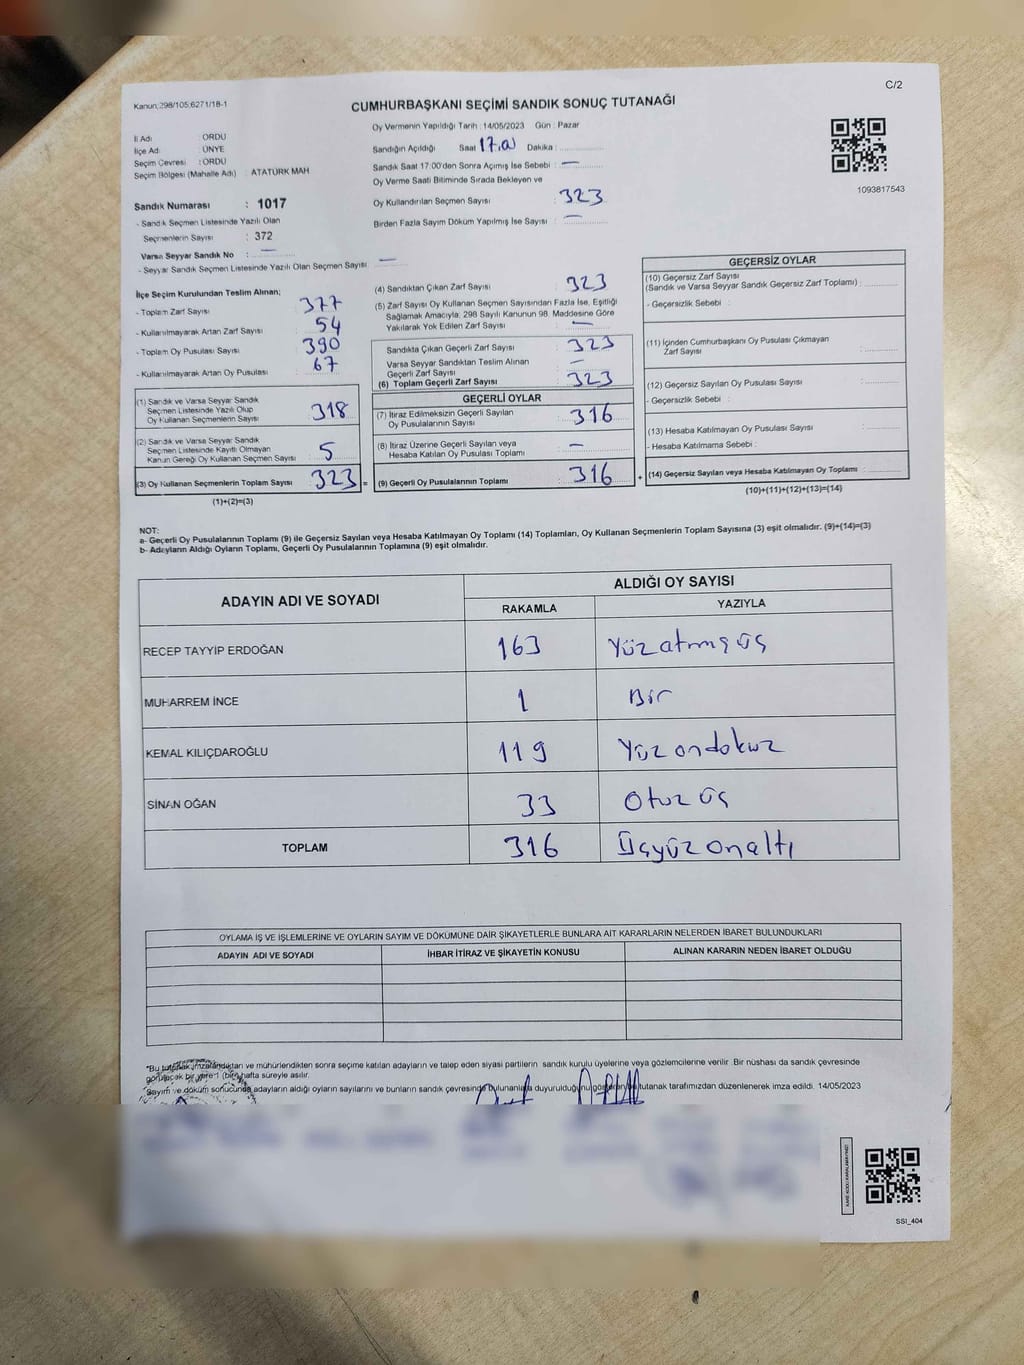 C/2
Kanun:298/105;6271/18-1
CUMHURBAŞKANI SEÇİMİ SANDIK SONUÇ TUTANAĞI
1093817543
İl Adı : ORDU
İlçe Adı : ÜNYE
Seçim Çevresi : ORDU
Seçim Bölgesi (Mahalle Adı) : ATATÜRK MAH
Sandık Numarası : 1017
- Sandık Seçmen Listesinde Yazılı Olan
Seçmenlerin Sayısı : 372
Varsa Seyyar Sandık No : —
- Seyyar Sandık Seçmen Listesinde Yazılı Olan Seçmen Sayısı —
Oy Vermenin Yapıldığı Tarih : 14/05/2023 Gün : Pazar
Sandığın Açıldığı Saat 17.00 Dakika :
Sandık Saat 17:00'den Sonra Açılmış İse Sebebi : —
Oy Verme Saati Bitiminde Sırada Bekleyen ve
Oy Kullandırılan Seçmen Sayısı : 323
Birden Fazla Sayım Döküm Yapılmış İse Sayısı : —
İlçe Seçim Kurulundan Teslim Alınan;
- Toplam Zarf Sayısı : 377
- Kullanılmayarak Artan Zarf Sayısı : 54
- Toplam Oy Pusulası Sayısı : 390
- Kullanılmayarak Artan Oy Pusulası : 67
(1) Sandık ve Varsa Seyyar Sandık
Seçmen Listesinde Yazılı Olup
Oy Kullanan Seçmenlerin Sayısı : 318
(2) Sandık ve Varsa Seyyar Sandık
Seçmen Listesinde Kayıtlı Olmayan
Kanun Gereği Oy Kullanan Seçmen Sayısı : 5
(3) Oy Kullanan Seçmenlerin Toplam Sayısı : 323 =
(1)+(2)=(3)
(4) Sandıktan Çıkan Zarf Sayısı : 323
(5) Zarf Sayısı Oy Kullanan Seçmen Sayısından Fazla İse, Eşitliği
Sağlamak Amacıyla; 298 Sayılı Kanunun 98. Maddesine Göre
Yakılarak Yok Edilen Zarf Sayısı : —
Sandıkta Çıkan Geçerli Zarf Sayısı : 323
Varsa Seyyar Sandıktan Teslim Alınan
Geçerli Zarf Sayısı : —
(6) Toplam Geçerli Zarf Sayısı : 323
GEÇERLİ OYLAR
(7) İtiraz Edilmeksizin Geçerli Sayılan
Oy Pusulalarının Sayısı : 316
(8) İtiraz Üzerine Geçerli Sayılan veya
Hesaba Katılan Oy Pusulası Toplamı : —
(9) Geçerli Oy Pusulalarının Toplamı : 316 +
GEÇERSİZ OYLAR
(10) Geçersiz Zarf Sayısı
(Sandık ve Varsa Seyyar Sandık Geçersiz Zarf Toplamı) :
- Geçersizlik Sebebi :
(11) İçinden Cumhurbaşkanı Oy Pusulası Çıkmayan
Zarf Sayısı :
(12) Geçersiz Sayılan Oy Pusulası Sayısı :
- Geçersizlik Sebebi :
(13) Hesaba Katılmayan Oy Pusulası Sayısı :
- Hesaba Katılmama Sebebi :
(14) Geçersiz Sayılan veya Hesaba Katılmayan Oy Toplamı :
(10)+(11)+(12)+(13)=(14)
NOT:
a- Geçerli Oy Pusulalarının Toplamı (9) ile Geçersiz Sayılan veya Hesaba Katılmayan Oy Toplamı (14) Toplamları, Oy Kullanan Seçmenlerin Toplam Sayısına (3) eşit olmalıdır. (9)+(14)=(3)
b- Adayların Aldığı Oyların Toplamı, Geçerli Oy Pusulalarının Toplamına (9) eşit olmalıdır.
ADAYIN ADI VE SOYADI ALDIĞI OY SAYISI
RAKAMLA YAZIYLA
RECEP TAYYİP ERDOĞAN 163 Yüzatmışüç
MUHARREM İNCE 1 Bir
KEMAL KILIÇDAROĞLU 119 Yüzondokuz
SİNAN OĞAN 33 Otuzüç
TOPLAM 316 Üçyüzonaltı
OYLAMA İŞ VE İŞLEMLERİNE VE OYLARIN SAYIM VE DÖKÜMÜNE DAİR ŞİKAYETLERLE BUNLARA AİT KARARLARIN NELERDEN İBARET BULUNDUKLARI
ADAYIN ADI VE SOYADI İHBAR İTİRAZ VE ŞİKAYETİN KONUSU ALINAN KARARIN NEDEN İBARET OLDUĞU
*Bu tutanak imzalandıktan ve mühürlendikten sonra seçime katılan adayların ve talep eden siyasi partilerin sandık kurulu üyelerine veya gözlemcilerine verilir. Bir nüshası da sandık çevresinde
görülecek bir yere 1 (bir) hafta süreyle asılır.
*Sayım ve döküm sonucunda adayların aldığı oyların sayılarını ve bunların sandık çevresinde bulunanlara duyurulduğunu gösteren bu tutanak tarafımızdan düzenlenerek imza edildi. 14/05/2023
KARE KODU KARALAMAYINIZ!
SSI_404